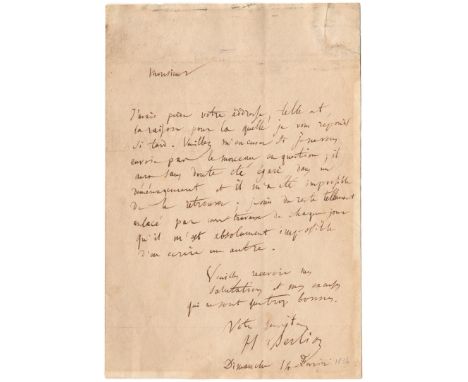 Monsieur
J'avais perdu votre addresse, telle est
la raison pour la quelle je vous reponds
si tard. Veuillez m'excuser si je ne vous
envoie pas le morceau en question; il
aura sans doute été égaré dans un
déménagement et il m'a été impossible
de le retrouver. je suis du reste tellement
enlacé par mes travaux de chaque jour
qu'il m'est absolument impossible
d'en ecrire un autre.
Veuillez recevoir mes
salutations et mes excuses
qui ne sont que trop bonnes.
Votre
H Berlioz
Dimanche 14